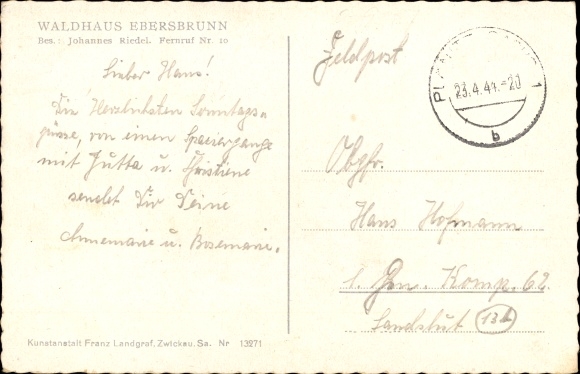 WALDHAUS EBERSBRUNN
Bes.: Johannes Riedel. Fernruf Nr. 10
Lieber Hans!
Die Herzlichsten Sonntags-
grüsse, von einen Spaziergange
mit Jutta u. Christiene
sendet Dir Deine
Annemarie u. Rosemarie.
Kunstanstalt Franz Landgraf, Zwickau, Sa. Nr 13271
Feldpost
23.4.44.-20
1
b
Obgfr.
Hans Hofmann
Komp. 62.
Landshut (13b)